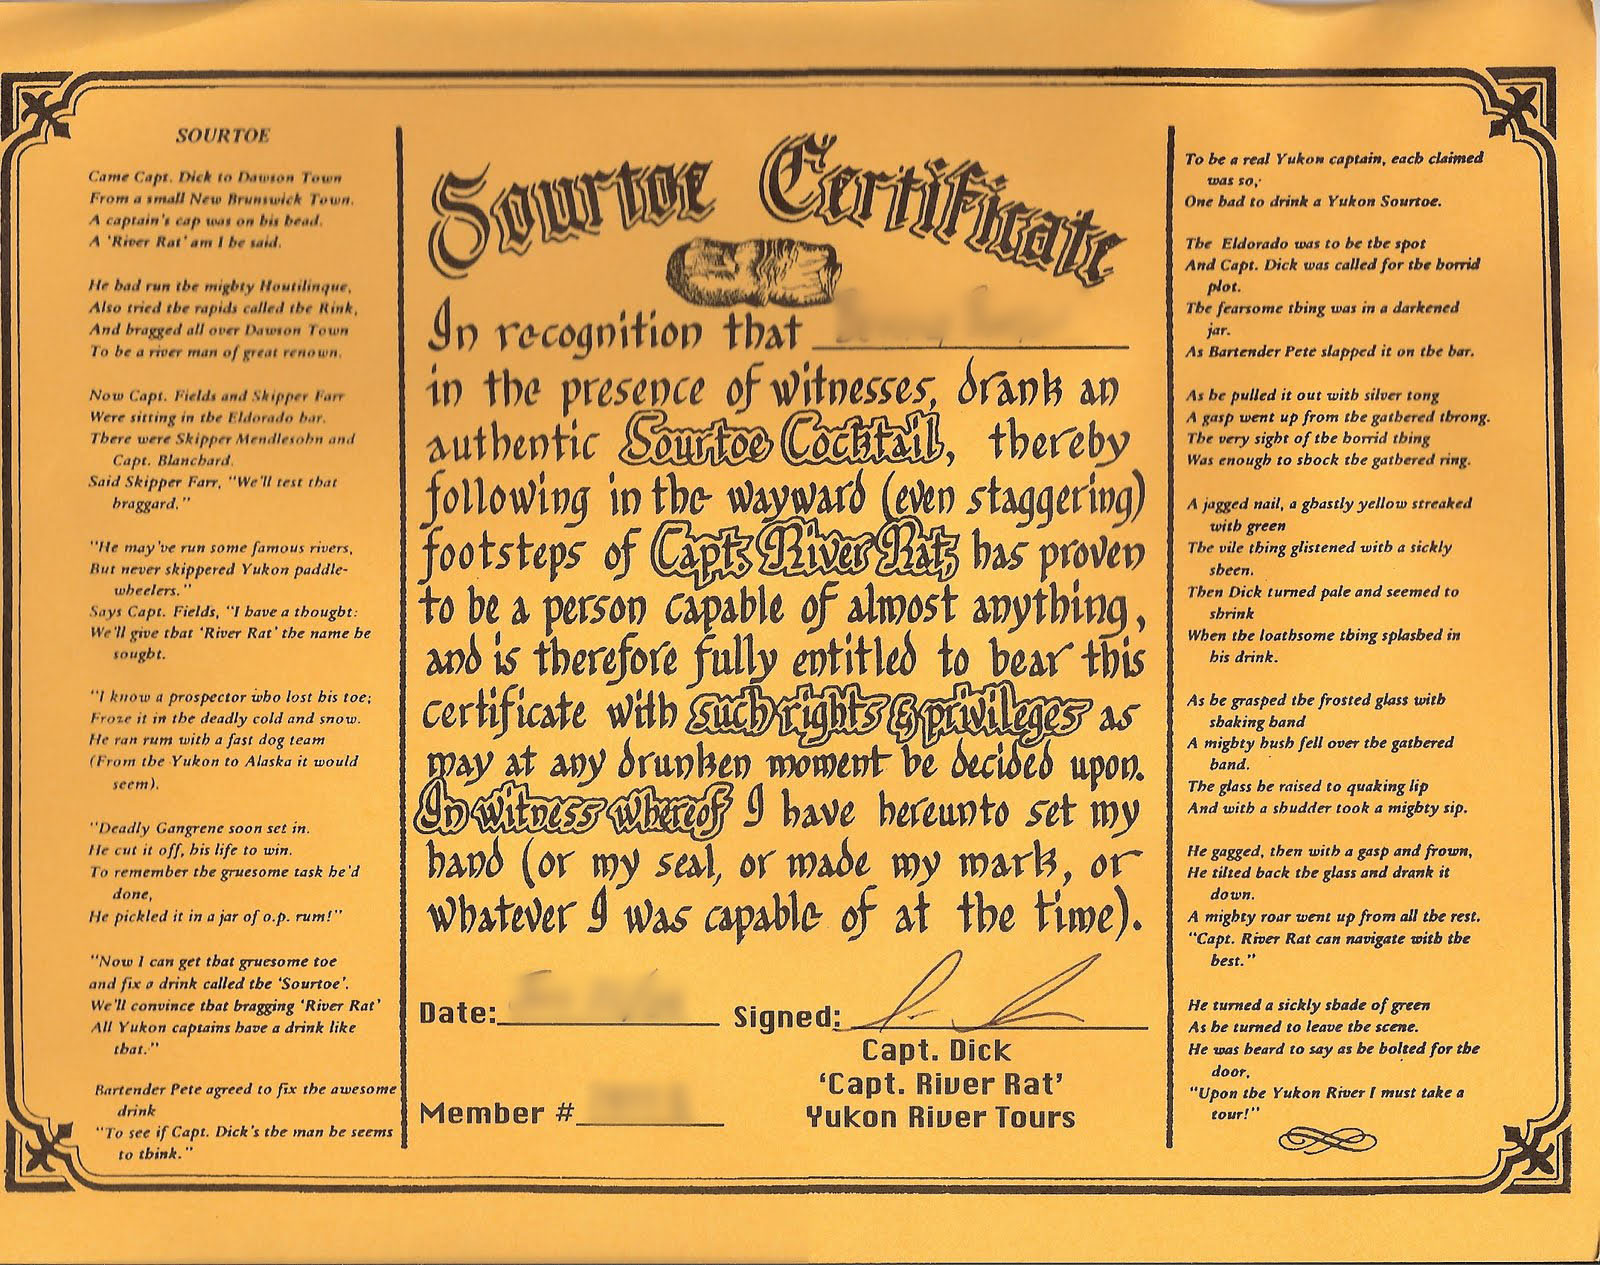 SOURTOE
Came Capt. Dick to Dawson Town
From a small New Brunswick Town.
A captain's cap was on his head.
A 'River Rat' am I he said.
He had run the mighty Houtilinque,
Also tried the rapids called the Rink,
And bragged all over Dawson Town
To be a river man of great renown.
Now Capt. Fields and Skipper Farr
Were sitting in the Eldorado bar.
There were Skipper Mendlesohn and
Capt. Blanchard.
Said Skipper Farr, "We'll test that
braggard."
"He may've run some famous rivers,
But never skippered Yukon paddle-
wheelers."
Says Capt. Fields, "I have a thought:
We'll give that 'River Rat' the name he
sought.
"I know a prospector who lost his toe;
Froze it in the deadly cold and snow.
He ran rum with a fast dog team
(From the Yukon to Alaska it would
seem).
"Deadly Gangrene soon set in.
He cut it off, his life to win.
To remember the gruesome task he'd
done,
He pickled it in a jar of o.p. rum!"
"Now I can get that gruesome toe
and fix a drink called the 'Sourtoe'.
We'll convince that bragging 'River Rat'
All Yukon captains have a drink like
that."
Bartender Pete agreed to fix the awesome
drink
"To see if Capt. Dick's the man he seems
to think."
Sourtoe Certificate
In recognition that
in the presence of witnesses, drank an
authentic Sourtoe Cocktail, thereby
following in the wayward (even staggering)
footsteps of Capt. River Rat, has proven
to be a person capable of almost anything,
and is therefore fully entitled to bear this
certificate with such rights & privileges as
may at any drunken moment be decided upon.
In witness whereof I have hereunto set my
hand (or my seal, or made my mark, or
whatever I was capable of at the time).
Date: Signed:
Capt. Dick
'Capt. River Rat'
Member # Yukon River Tours
To be a real Yukon captain, each claimed
was so,
One had to drink a Yukon Sourtoe.
The Eldorado was to be the spot
And Capt. Dick was called for the horrid
plot.
The fearsome thing was in a darkened
jar.
As Bartender Pete slapped it on the bar.
As he pulled it out with silver tong
A gasp went up from the gathered throng.
The very sight of the horrid thing
Was enough to shock the gathered ring.
A jagged nail, a ghastly yellow streaked
with green
The vile thing glistened with a sickly
sheen.
Then Dick turned pale and seemed to
shrink
When the loathsome thing splashed in
his drink.
As he grasped the frosted glass with
shaking hand
A mighty hush fell over the gathered
band.
The glass he raised to quaking lip
And with a shudder took a mighty sip.
He gagged, then with a gasp and frown,
He tilted back the glass and drank it
down.
A mighty roar went up from all the rest.
"Capt. River Rat can navigate with the
best."
He turned a sickly shade of green
As he turned to leave the scene.
He was heard to say as he bolted for the
door,
"Upon the Yukon River I must take a
tour!"